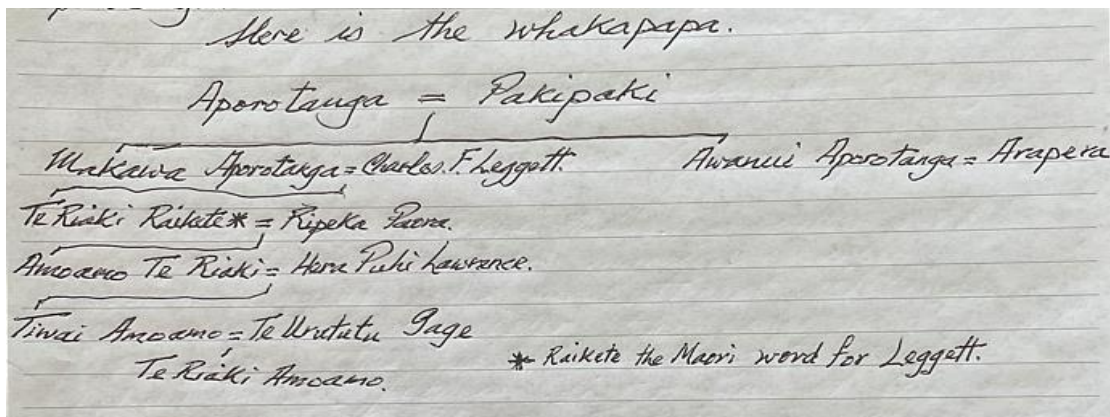 Here is the whakapapa.
Aporotanga = Pakipaki
Makawa Aporotanga = Charles. F. Leggott. Awanui Aporotanga = Arapera
Te Riaki Raikete* = Ripeka Paora.
Amoamo Te Riaki = Hera Puhi Lawrence.
Tiwai Amoamo = Te Urututu Gage
Te Riaki Amoamo.
* Raikete the Maori word for Leggett.